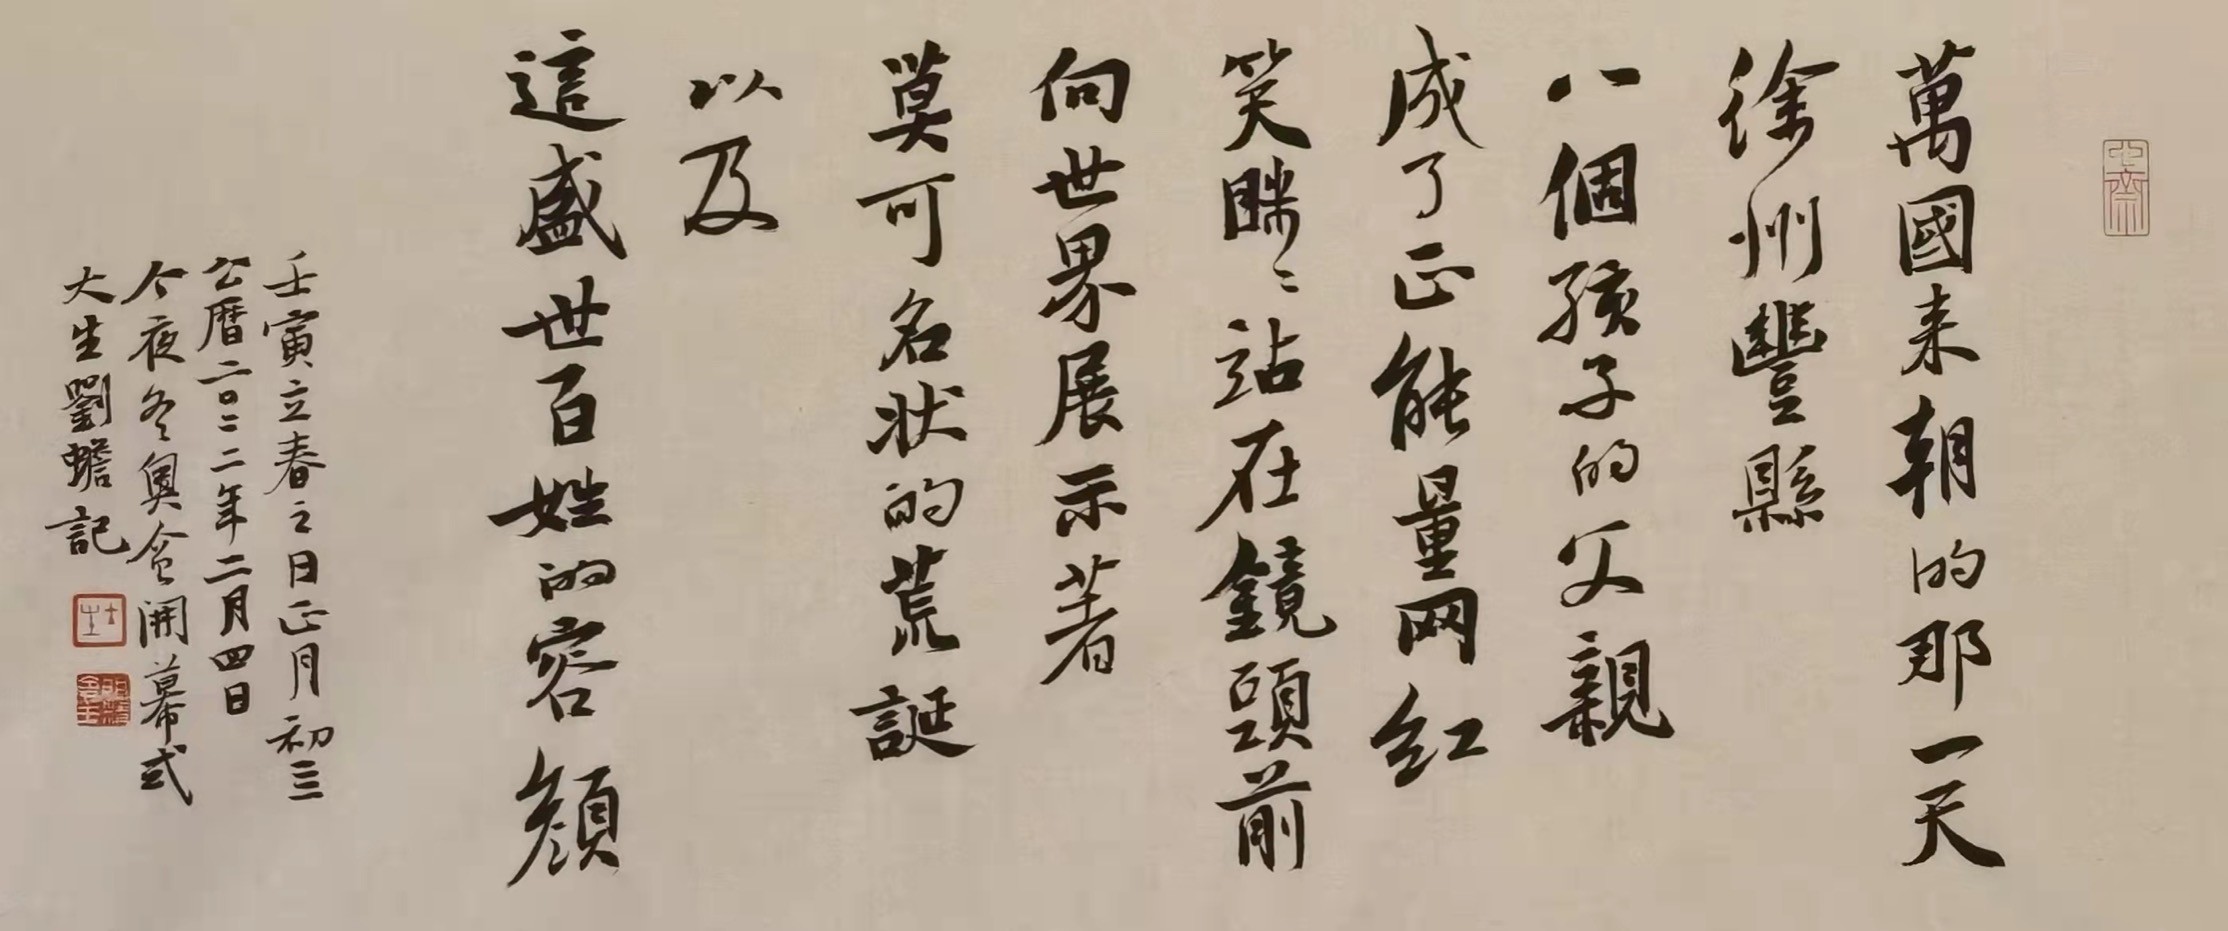 萬國来朝的那一天
徐州豐縣
八個孩子的父親
成了正能量网红
笑眯〻站在鏡頭前
向世界展示著
莫可名状的荒誕
以及
這盛世百姓的容顔
壬寅立春之日正月初三
公曆二〇二二年二月四日
今夜冬奥會開幕式
大生劉蟾記